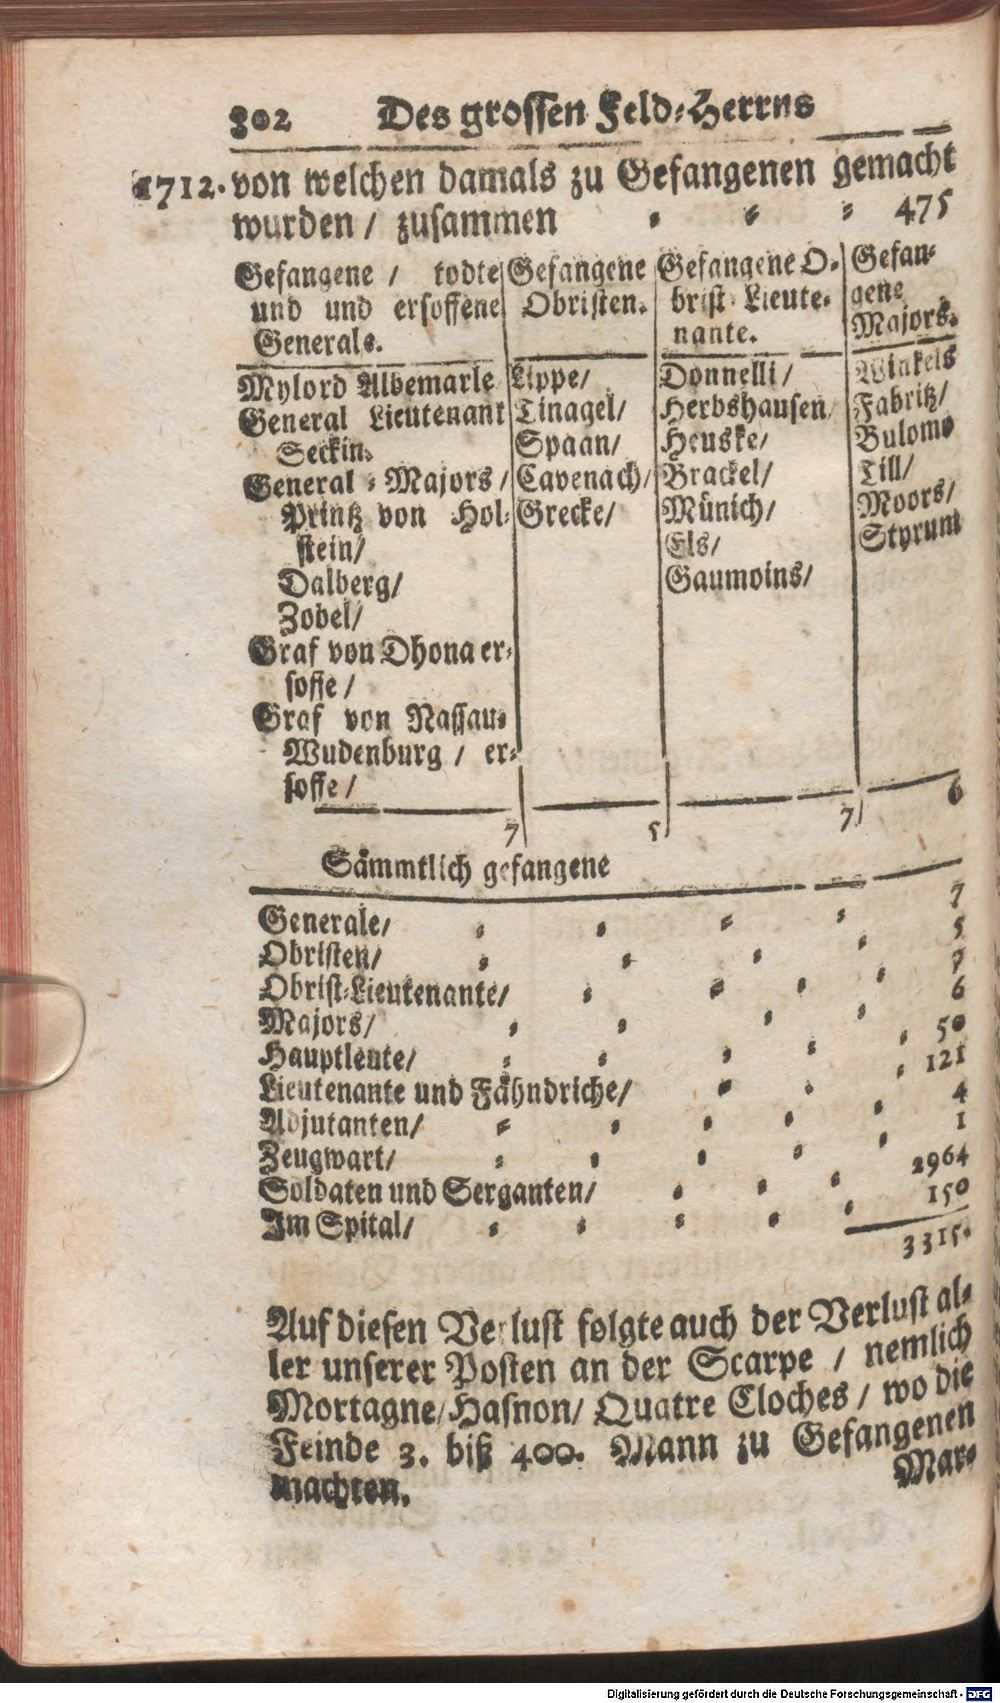 302 Des grossen Feld-Herrns
1712. von welchen damals zu Gefangenen gemacht
wurden / zusammen 475
Gefangene / todte
und und ersoffene
Generale.
Mylord Albemarle
General Lieutenant
Seckin-
General-Majors /
Printz von Hol-
stein /
Dalberg /
Zobel /
Graf von Dhona er-
soffe /
Graf von Nassau-
Wudenburg / er-
soffe /
7
Gefangene
Obristen.
Lippe /
Tinagel /
Spaan /
Cavenach /
Grecke /
5
Gefangene O-
brist-Lieute-
nante.
Donnelli /
Herbshausen /
Heuske /
Brackel /
Münich /
Els /
Gaumoins /
7
Gefan-
gene
Majors.
Winkels
Fabritz /
Bulowo
Till /
Moors /
Styrum
6
Sämmtlich gefangene
Generale / 7
Obristen / 5
Obrist-Lieutenante / 7
Majors / 6
Hauptleute / 50
Lieutenante und Fähndriche / 121
Adjutanten / 4
Zeugwart / 1
Soldaten und Serganten / 2964
Im Spital / 150
3315.
Auf diesen Verlust folgte auch der Verlust al-
ler unserer Posten an der Scarpe / nemlich
Mortagne / Hasnon / Quatre Cloches / wo die
Feinde 3. biß 400. Mann zu Gefangenen
machten.
Mar-
Digitalisierung gefördert durch die Deutsche Forschungsgemeinschaft - DFG